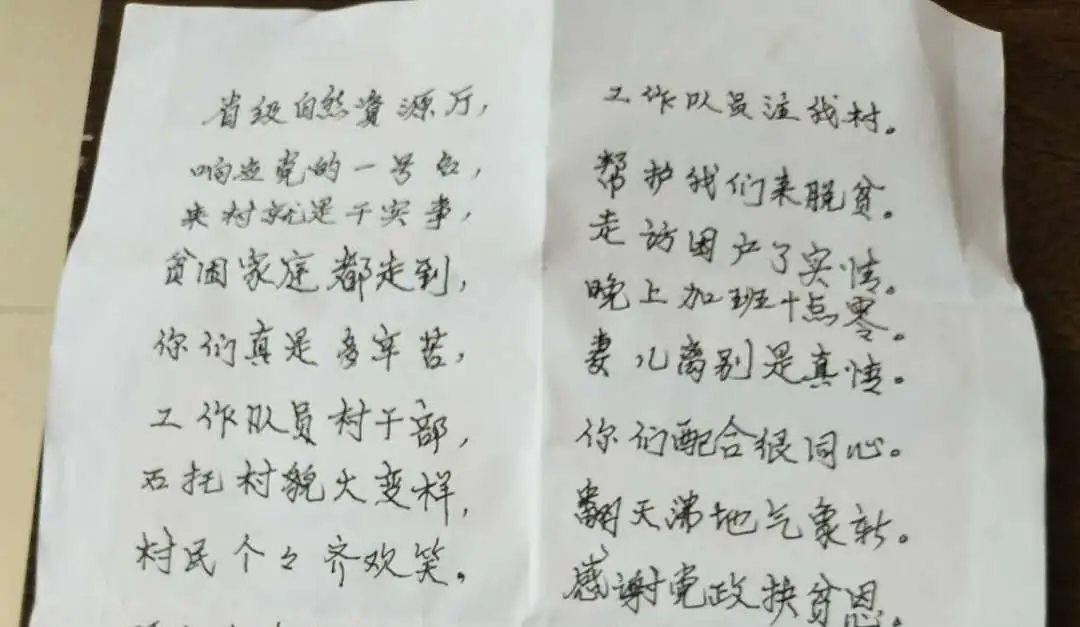 省级自然資源厅，
工作队员注我村。
响应党的一号召，
帮护我们来脱贫。
来村就是干实事，
走访困户了实情。
贫困家庭都走到，
晚上加班十点零。
你们真是多辛苦，
妻儿离别是真情。
工作队员村干部，
你们配合很同心。
石托村貌大变样，
翻天沸地气象新。
村民个々齐欢笑。
感谢党政扶贫恩。